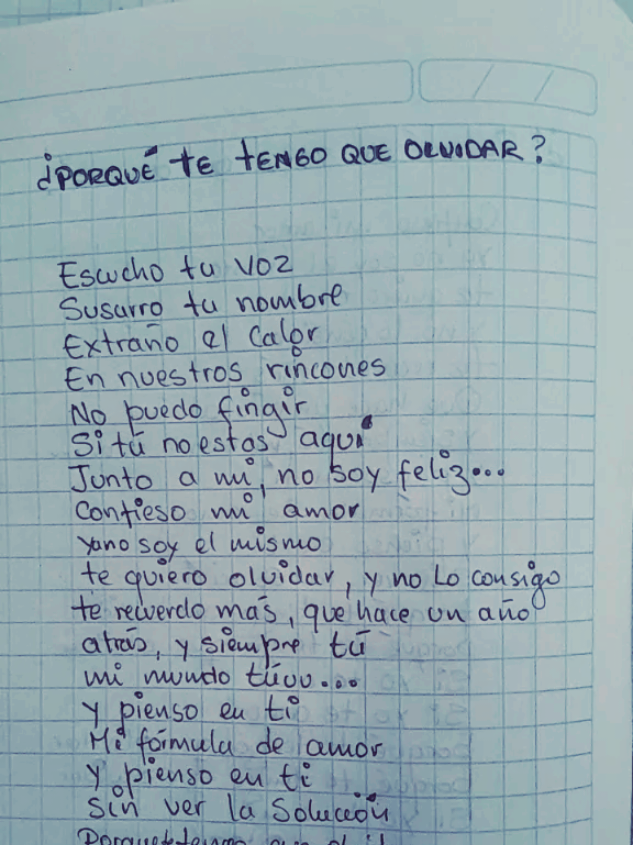 ¿PORQUÉ TE TENGO QUE OLVIDAR?
Escucho tu voz
Susurro tu nombre
Extraño el Calor
En nuestros rincones
No puedo fingir
Si tú no estas aquí
Junto a mi, no soy feliz...
Confieso mi amor
ya no soy el mismo
te quiero olvidar, y no Lo consigo
te recuerdo más, que hace un año
atrás, y siempre tú
mi mundo túuu...
Y pienso en ti
Mi fórmula de amor
Y pienso en ti
Sin ver la Solución